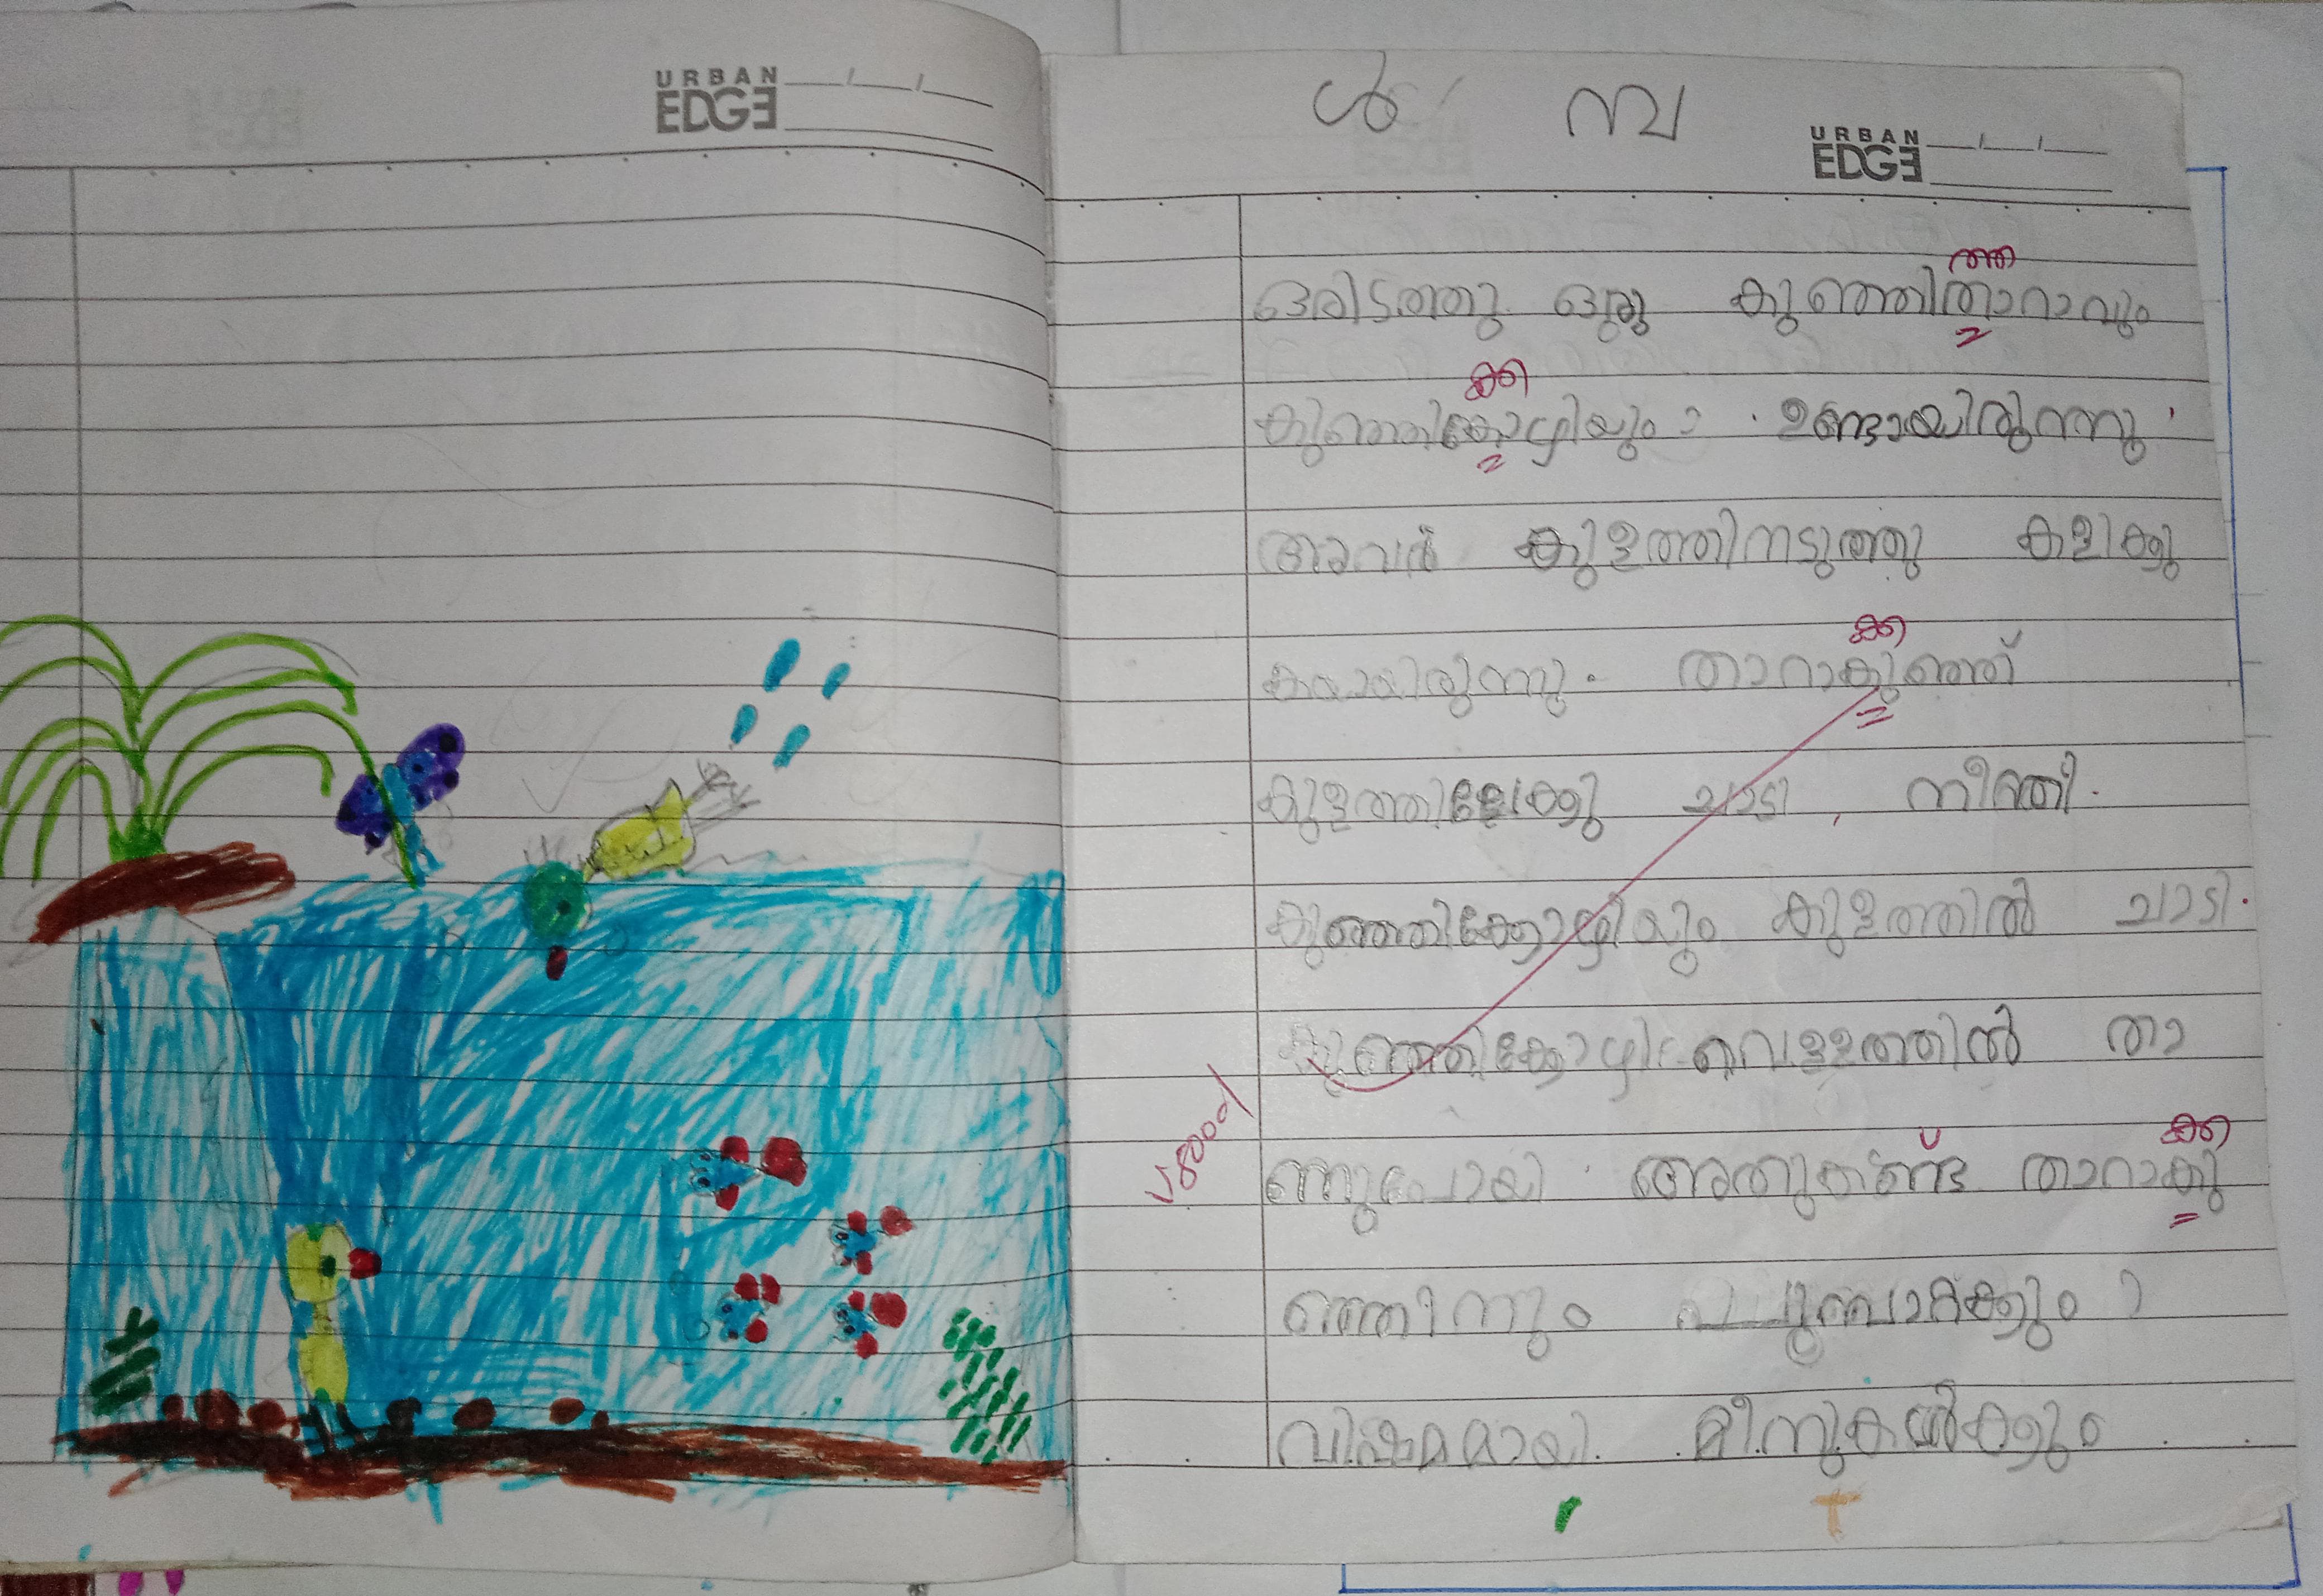 URBAN
EDGE
ൾ മ്പ
URBAN
EDGE
ത്ത
ഒരിടത്തു ഒരു കുഞ്ഞിതാറാവും
ക്കി
കുഞ്ഞികോഴിയും ഉണ്ടായിരുന്നു
അവർ കുളത്തിനടുത്തു കളിക്കു
ക്ക
കയായിരുന്നു. താറാകുഞ്ഞ്
കുളത്തിളേക്കു ചാടി, നീന്തി.
കുഞ്ഞിക്കോഴിയും കുളത്തിൽ ചാടി.
കുഞ്ഞിക്കോഴി വെള്ളത്തിൽ താ
ക്ക
ണ്ണുപോയി അതുകണ്ട് താറാകു
ഞ്ഞിനും പൂമ്പാറ്റക്കും
വിഷമമായി. മീനുകൾകളും